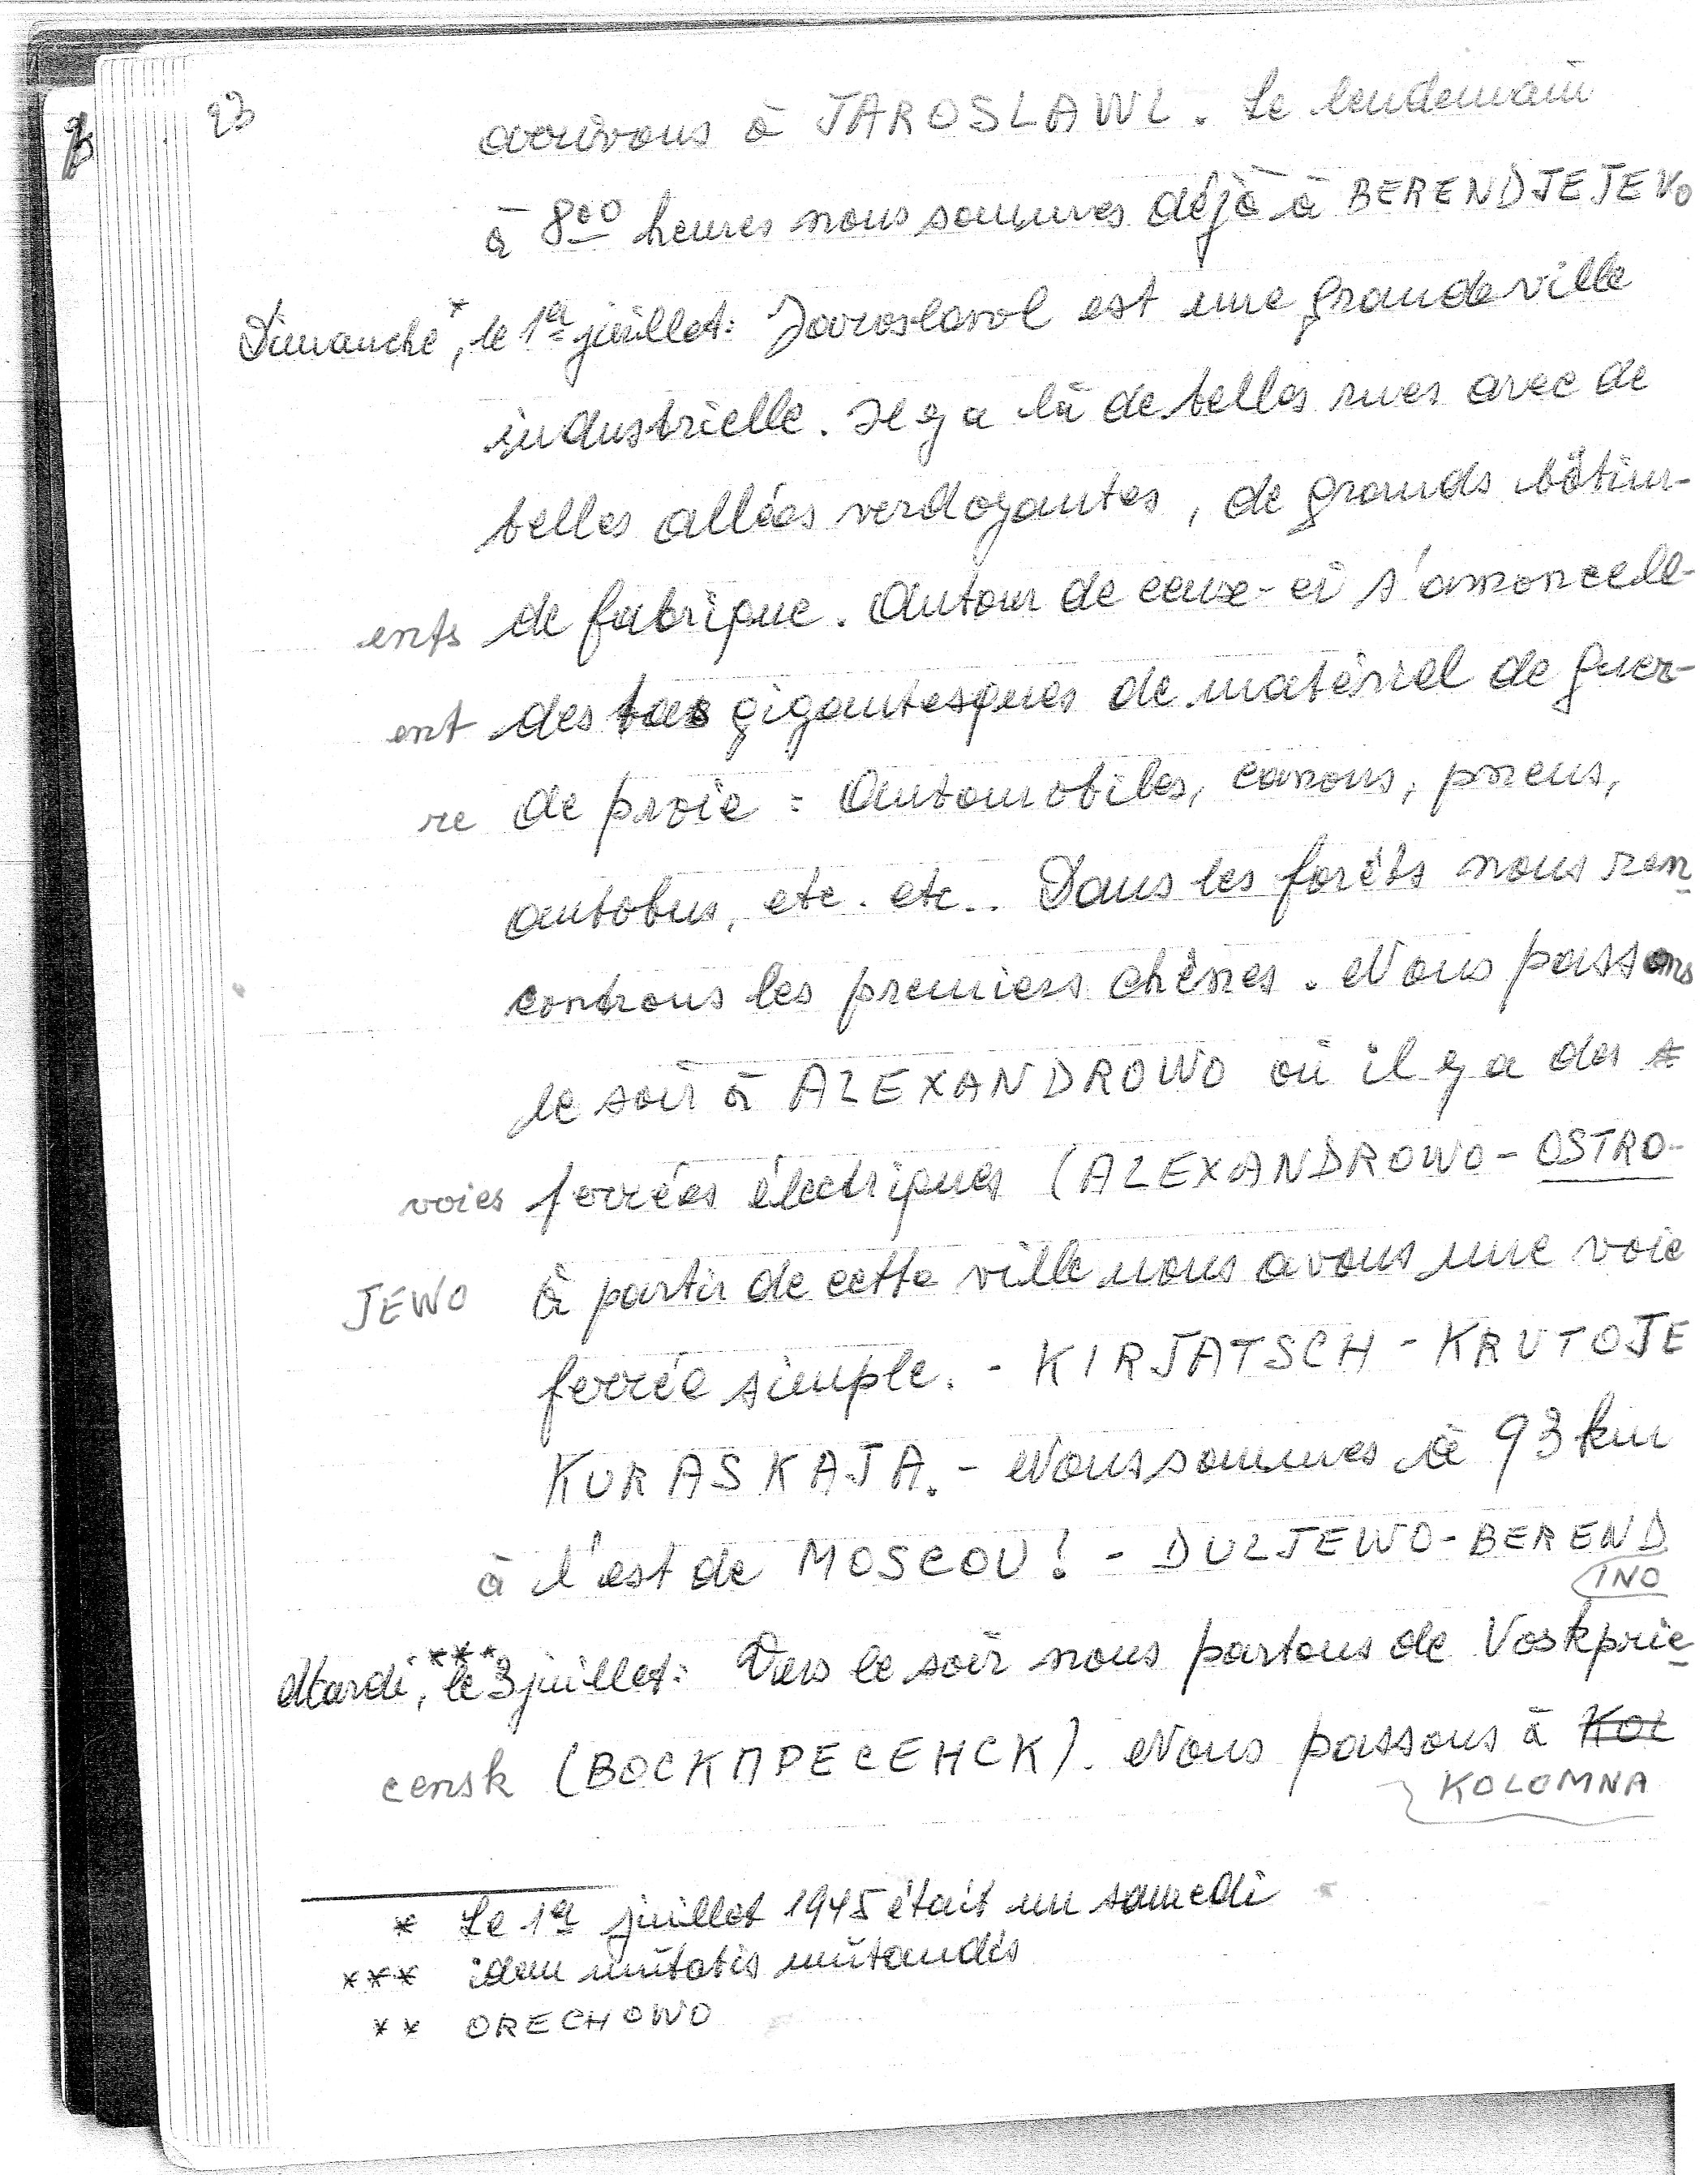 23
arrivons à JAROSLAWL. Le lendemain
à 8oo heures nous sommes déjà à BERENDJEJEVO
Dimanche*, le 1er juillet: Jaroslavol est une grande ville
industrielle. Il y a là de belles rues avec de
belles allées verdoyantes, de grands bâtim-
ents de fabrique. Autour de ceux-ci s'amoncell-
ent des tas gigantesques de matériel de guer-
re de proie : Automobiles, canons, pneus,
autobus, etc. etc.. Dans les forêts nous ren-
controns les premiers chênes. Nous passons
le soir à ALEXANDROWO où il y a des
voies ferrées électriques (ALEXANDROWO-OSTRO-
JEWO à partir de cette ville nous avons une voie
ferrée simple. - KIRJATSCH - KRUTOJE
KURASKAJA. - Nous sommes à 93 km
à l'est de MOSCOU! - DULJEWO-BEREND
INO
Mardi,*** le 3 juillet: Vers le soir nous partons de Voskprie-
censk (ВОСКПРЕСЕНСК). Nous passons à KOL
KOLOMNA
* Le 1er juillet 1945 était un samedi
*** idem mutatis mutandis
** ORECHOWO